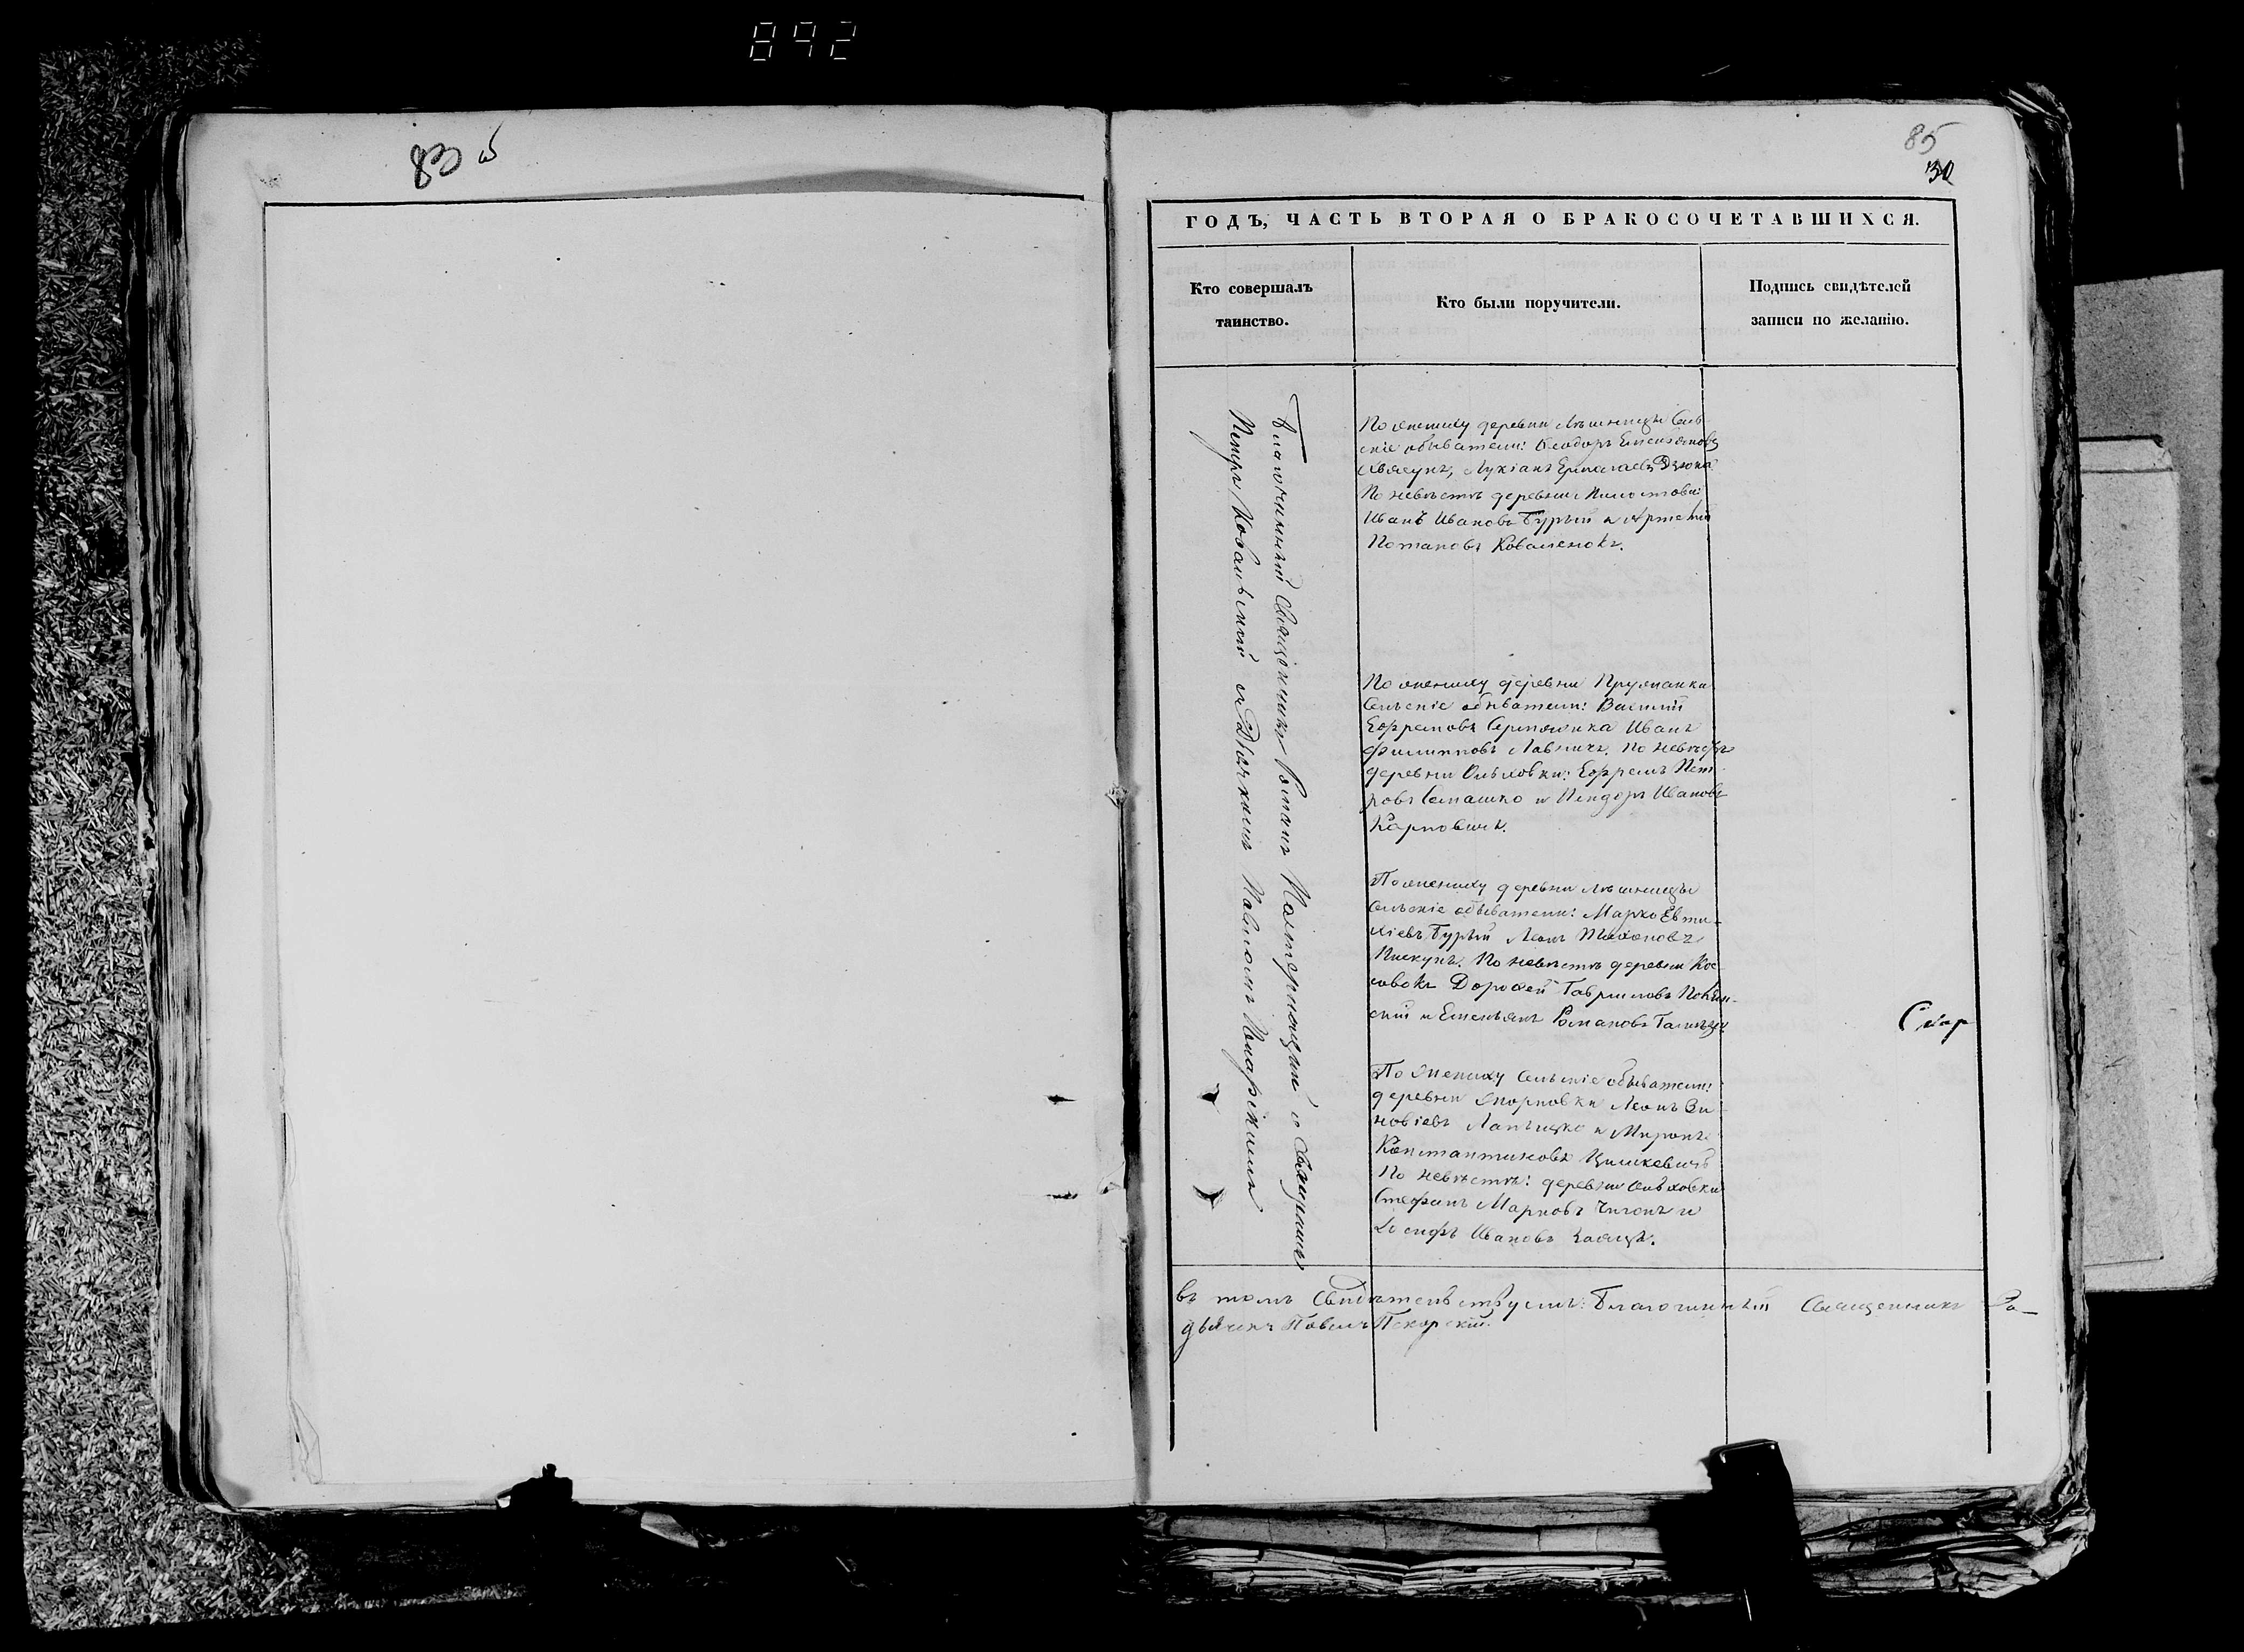 892
83 об
85
30
ГОДЪ, ЧАСТЬ ВТОРАЯ О БРАКОСОЧЕТАВШИХСЯ.
Кто совершалъ
таинство.
Кто были поручители.
Подпись свидѣтелей
записи по желанію.
Благочинный Священникъ Романъ Пастернацкій съ
Петръ Ковальскій Дьячкомъ Павломъ
По жениху деревни Лѣшницы Сель-
скіе обыватели: Ѳеодоръ Емельяновъ
Лукіанъ Ермолаевъ
По невѣстѣ деревни
Иванъ Ивановъ Бурый и Артемій
Потаповъ Коваленокъ.
По жениху деревни Прусанки
Сельскіе обыватели: Василій
Ефремовъ Иванъ
Филипповъ По невѣстѣ
деревни Ольховки: Ефремъ Пет-
ровъ Семашко и Ивановъ
Карповичъ.
По жениху деревни Лѣшницы
Сельскіе обыватели: Марко Евти-
хіевъ Бурый Леонъ Тихоновъ
Пискунъ. По невѣстѣ деревни Кос-
совокъ Дорофей Гавриловъ
скій и Емельянъ Романовъ
По жениху Сельскіе обыватели:
деревни Леонъ Зи-
новіевъ и Миронъ
Константиновъ Цишкевичъ
По невѣстѣ: деревни Ольховки
Стефанъ Марковъ и
Іосифъ Ивановъ Заяцъ.
Скар
въ томъ Свидѣтельствуемъ: Благочинный Священникъ Ро-
дьячекъ Павелъ